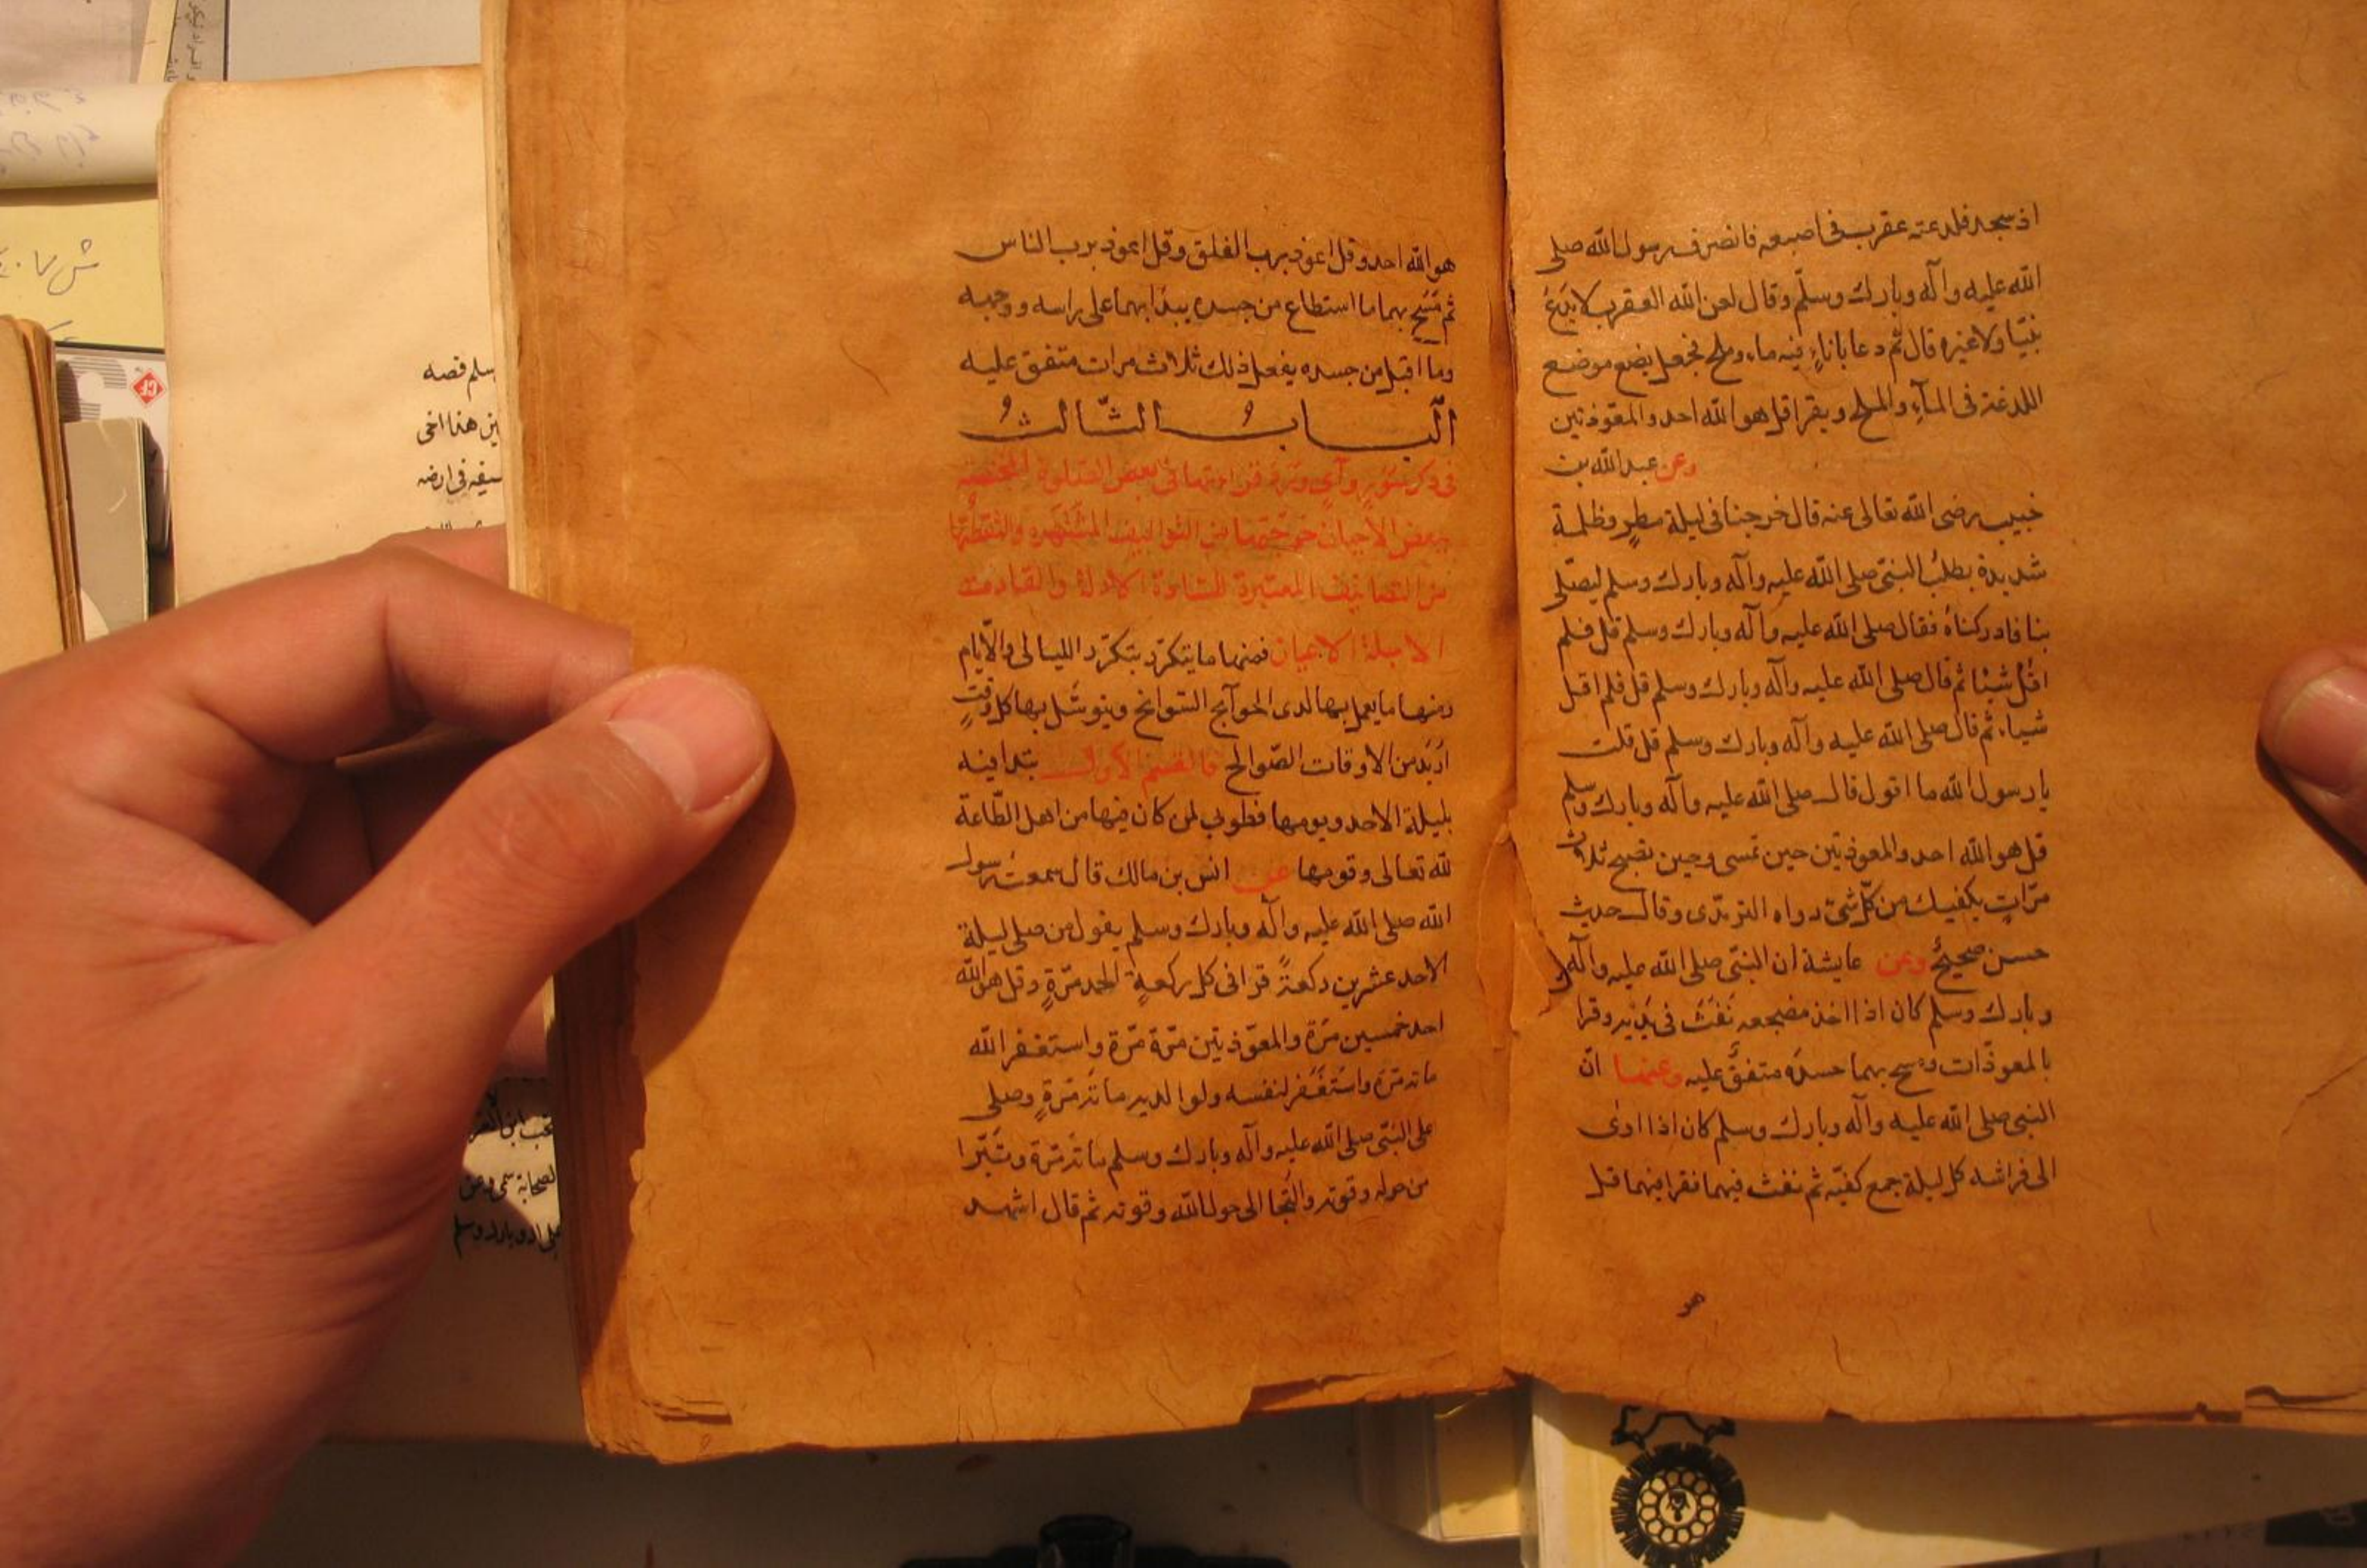 اذ سجد فلدغته عقرب فى اصبعه فانصرف رسول الله صلى
الله عليه وآله وبارك وسلّم وقال لعن الله العقرب لا يَدَعُ
نبيّا ولا غيره قال ثم دعا باناءٍ فيه ماء وملح فجعل يضع موضع
اللدغة فى المآءِ والملح ويقرا قل هو الله احد والمعوّذتين
وعن عبد الله بن
خبيب رضى الله تعالى عنه قال خرجنا فى ليلة مطرٍ وظلمة
شديدة بطلبُ النبىّ صلى الله عليه وآله وبارك وسلم ليصلّى
بنا فادركناهُ فقال صلى الله عليه وآله وبارك وسلم قل فلم
اقُلْ شيْئا ثم قال صلى الله عليه وآله وبارك وسلم قل فلم اقل
شيا ثم قال صلى الله عليه وآله وبارك وسلم قل قلت
يا رسول الله ما اقول قال صلى الله عليه وآله وبارك وسلم
قل هو الله احد والمعوذتين حين تمسى وحين تصبح ثلاث
مرّاتٍ يكفيك من كلّ شىءٍ رواه الترمذى وقال حديث
حسن صحيحٌ وعن عايشة ان النبىّ صلى الله عليه وآله
وبارك وسلم كان اذا اخذ مضجعه نَفَثَ فى يديه وقرا
بالمعوذّات ومسح بهما جسدَه متفقٌ عليه وعنها انّ
النبى صلى الله عليه وآله وبارك وسلم كان اذا اوى
الى فراشه كل ليلة جمع كفيّه ثم نفث فيهما فقرا فيهما قل
هو
هو الله احد وقل اعوذ برب الفلق وقل اعوذ برب الناس
ثم مَسَح بهما ما استطاع من جسده يبدَا بهما على راسه ووجهه
وما اقبل من جسده يفعل ذلك ثلاث مرات متفق عليه
الَبابُ الثّالثُ
فى ذكر سُوَرٍ وآىٍ قراءتها فى بعض
ببعض الاحيان من التواليف المشتهره والتقطتها
من التصانيف المعتبرة للسادة
فمنها ما يتكرّر بتكرّر الليالى والايّام
ومنها ما يعمل بها لدى الحوآيج السّوانح ويتوسّل بها كل وقتٍ
اُرِيدَ من الاوقات الصّوالح فالقسم الاول يبتدا فيه
بليلة الاحد ويومها فطوبى لمن كان فيها من اهل الطّاعة
لله تعالى وقومها عن انس بن مالك قال سمعت رسول
الله صلى الله عليه وآله وبارك وسلم يقول من صلى ليلة
الاحد عشرين ركعةً قرا فى كل ركعةٍ الحمد مرّةٍ وقل هو الله
احد خمسين مرّة والمعوّذتين مرّة مرّة واستغفر الله
مائة مرّة واستَغْفَر لنفسه ولوالديه مائة مرّةٍ وصلى
على النبّى صلى الله عليه وآله وبارك وسلم مائة مرّة وتَبَرّا
من حوله وقوته والتَجا الى حول الله وقوته ثم قال اشهد
سلم قصه